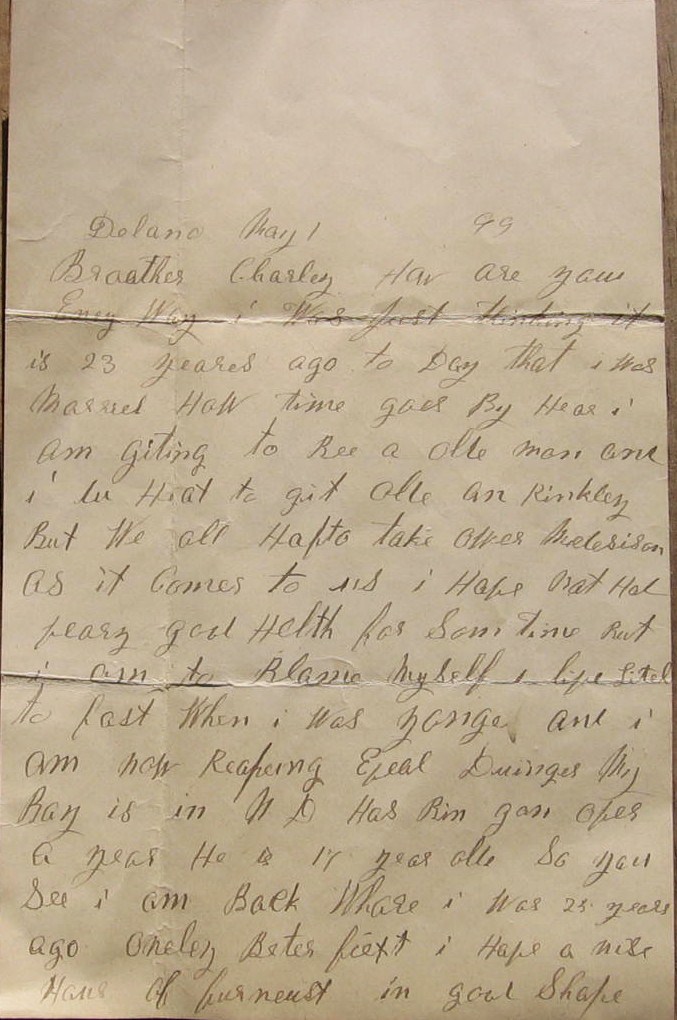 Delano May 1 99
Broather Charley How are you
Eney Way i Was just thinking it
is 23 yeares ago to Day that i Was
Marred How time goes By Hear i
am giting to Bee a olde man and
i du Hiat to git olde an Rinkley
But We all Hafto take ower Medesison
as it Comes to us i Have Nat Had
veary god Helth for Som time But
i am to Blame Myself i live Litel
to fast When i Was yonge and i
am now Reapeing Eveal Duinges My
Bay is in N D Has Bin gon over
a year He is 17 year olde So you
See i am Back Whare i Was 23 years
ago Oneley Beter fixt i Have a nise
Hous of furneust in good Shape